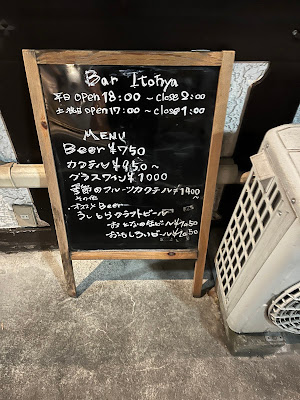 Bar Itohya
平日 open 18:00 ~ close 2:00
土祝日 open 17:00 ~ close 1:00
MENU
Beer ¥750
カクテル ¥950~
グラスワイン ¥1000
季節のフルーツカクテル ¥1400~
その他
オススメ Beer
うしとらクラフトビール
おとなの生ビール ¥1050
おもしろいビール ¥1050